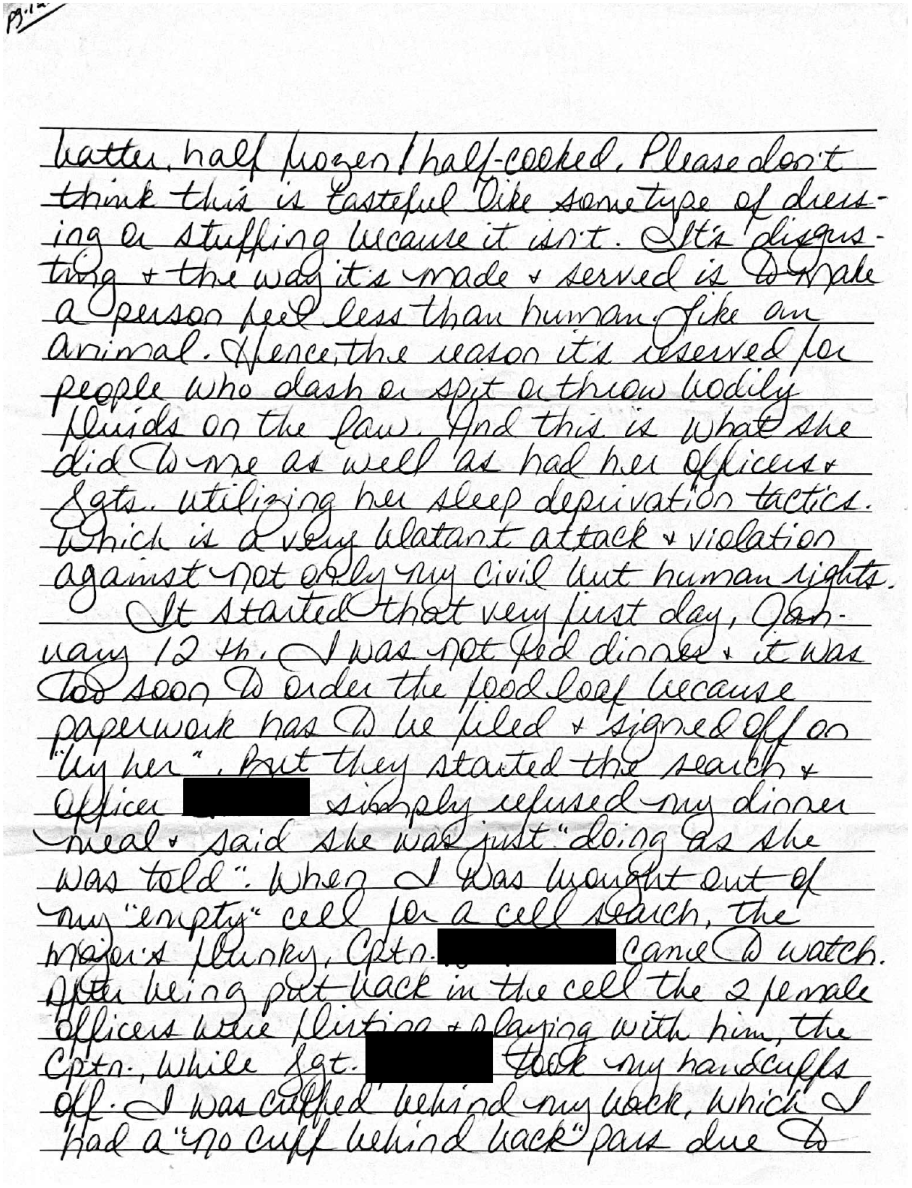 pg. 12
batter, half frozen/half-cooked. Please don't
think this is tasteful like some type of dress-
ing or stuffing because it isn't. It's disgus-
ting & the way it's made & served is to make
a person feel less than human. Like an
animal. Hence, the reason it's reserved for
people who dash or spit or throw bodily
fluids on the law. And this is what she
did to me as well as had her officers &
Sgts. utilizing her sleep deprivation tactics.
Which is a very blatant attack & violation
against not only my civil but human rights.
It started that very first day, Jan-
uary 12th. I was not fed dinner & it was
too soon to order the food loaf because
paperwork has to be filed & signed off on
"by her". But they started the search &
Officer simply refused my dinner
meal & said she was just "doing as she
was told". When I was brought out of
my "empty" cell for a cell search, the
major's flunky, Cptn. came to watch.
After being put back in the cell the 2 female
officers were flirting & playing with him, the
Cptn., while Sgt. took my handcuffs
off. I was cuffed behind my back, which I
had a "no cuff behind back" pass due to